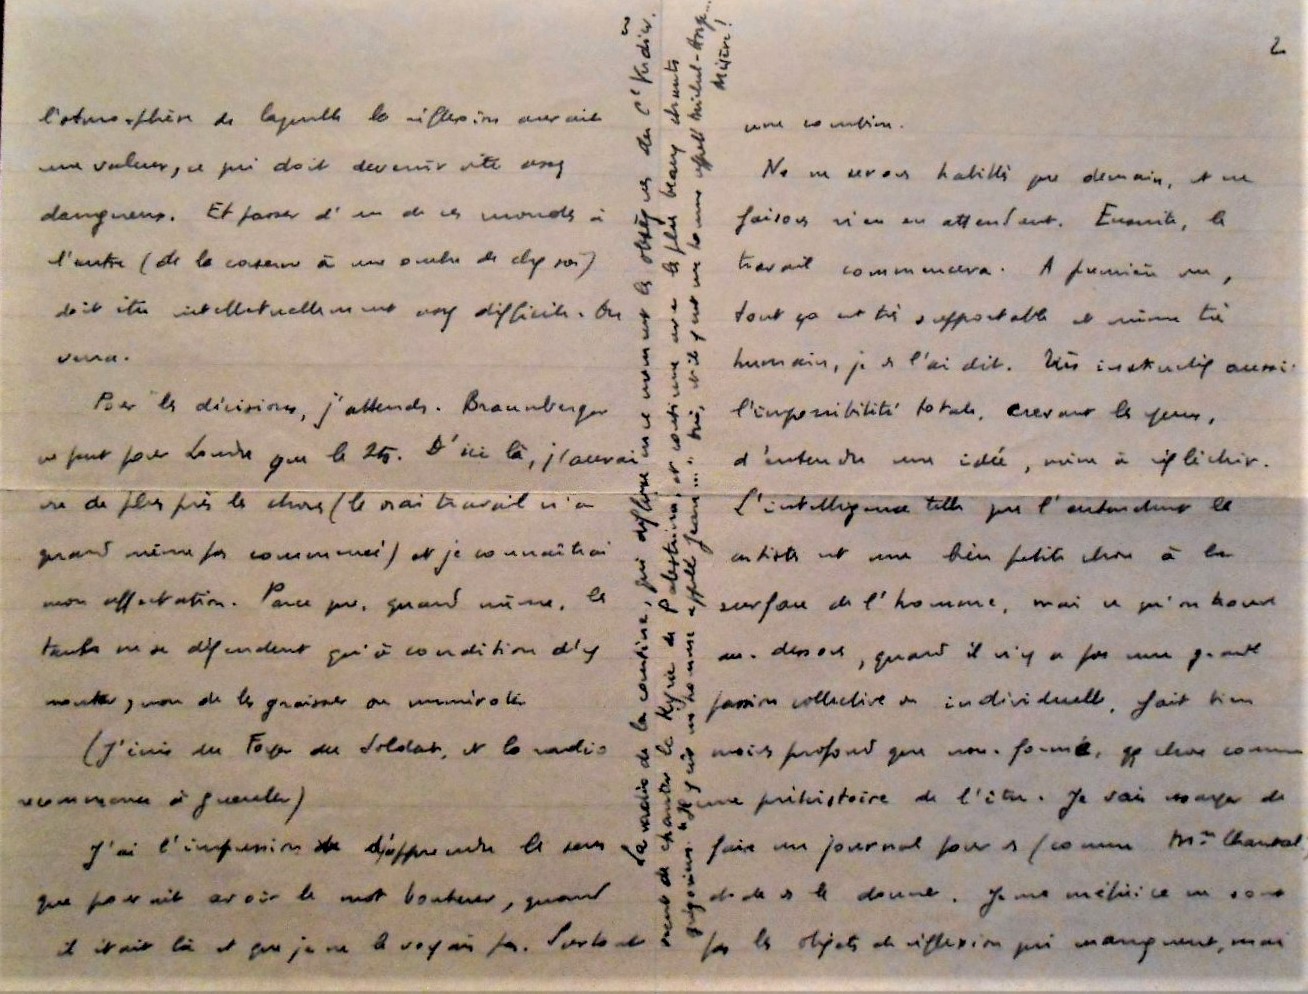 l'atmosphère de laquelle la réflexion aurait
une valeur, ce qui doit devenir vite assez
dangereux. Et passer d'un de ces mondes à
l'autre (de la caserne à une ombre de chez soi)
doit être intellectuellement assez difficile. On
verra.
Pour les décisions, j'attends. Braunberger
ne part pour Londres que le 25. D'ici là, j'aurai
vu de plus près les choses (le vrai travail n'a
quand même pas commencé) et je connaîtrai
mon affectation. Parce que, quand même, les
tanks ne se défendent qu'à condition d'y
monter, non de les graisser ou numéroter
(J'écris du Foyer du Soldat, et la radio
recommence à gueuler)
J'ai l'impression d'apprendre le sens
que pouvait avoir le mot bonheur, quand
il était là et que je ne le voyais pas. Surtout
3
La radio de la cantine, qui diffuse en ce moment les obsèques du Cl Verdier.
vient de chanter le Kyrie de Palestrina, et continue avec les plus beaux chants
grégoriens. "Il y eut un homme appelé Jean..." Oui, et il y eut un homme appelé Michel-Ange...
Misère!
2
une combine.
Ne serons habillés que demain, et ne
faisons rien en attendant. Ensuite, le
travail commencera. A première vue,
tout ça est très supportable et même très
humain, je vs l'ai dit. Très instructif aussi:
l'impossibilité totale, crevant les yeux,
d'entendre une idée, même à réfléchir.
L'intelligence telle que l'entendent les
artistes est une bien petite chose à la
surface de l'homme, mais ce qu'on trouve
au-dessous, quand il n'y a pas une grande
passion collective ou individuelle, fait bien
moins profond que non-formé, qq chose comme
une préhistoire de l'être. Je vais essayer de
faire un journal pour vs (comme Mme Chantal)
et de vs le donner. Je me méfie: ce ne sont
pas les objets de réflexion qui manquent, mais